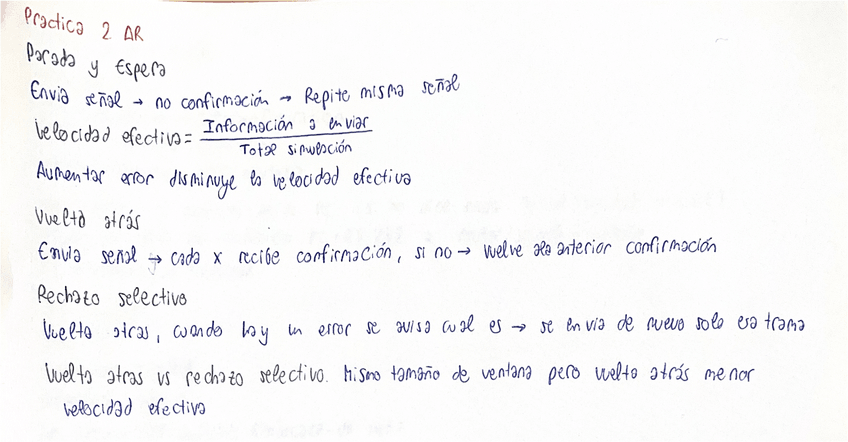 Practica 2 AR
Parada y Espera
Envia señal → no confirmación → Repite misma señal
Velocidad efectiva = Información a enviar / Total simulación
Aumentar error disminuye la velocidad efectiva
Vuelta atrás
Envia señal → cada x recibe confirmación, si no → vuelve a la anterior confirmación
Rechazo selectivo
Vuelta atras, cuando hay un error se avisa cual es → se envia de nuevo solo esa trama
Vuelta atras vs rechazo selectivo. Mismo tamaño de ventana pero vuelta atrás menor
velocidad efectiva